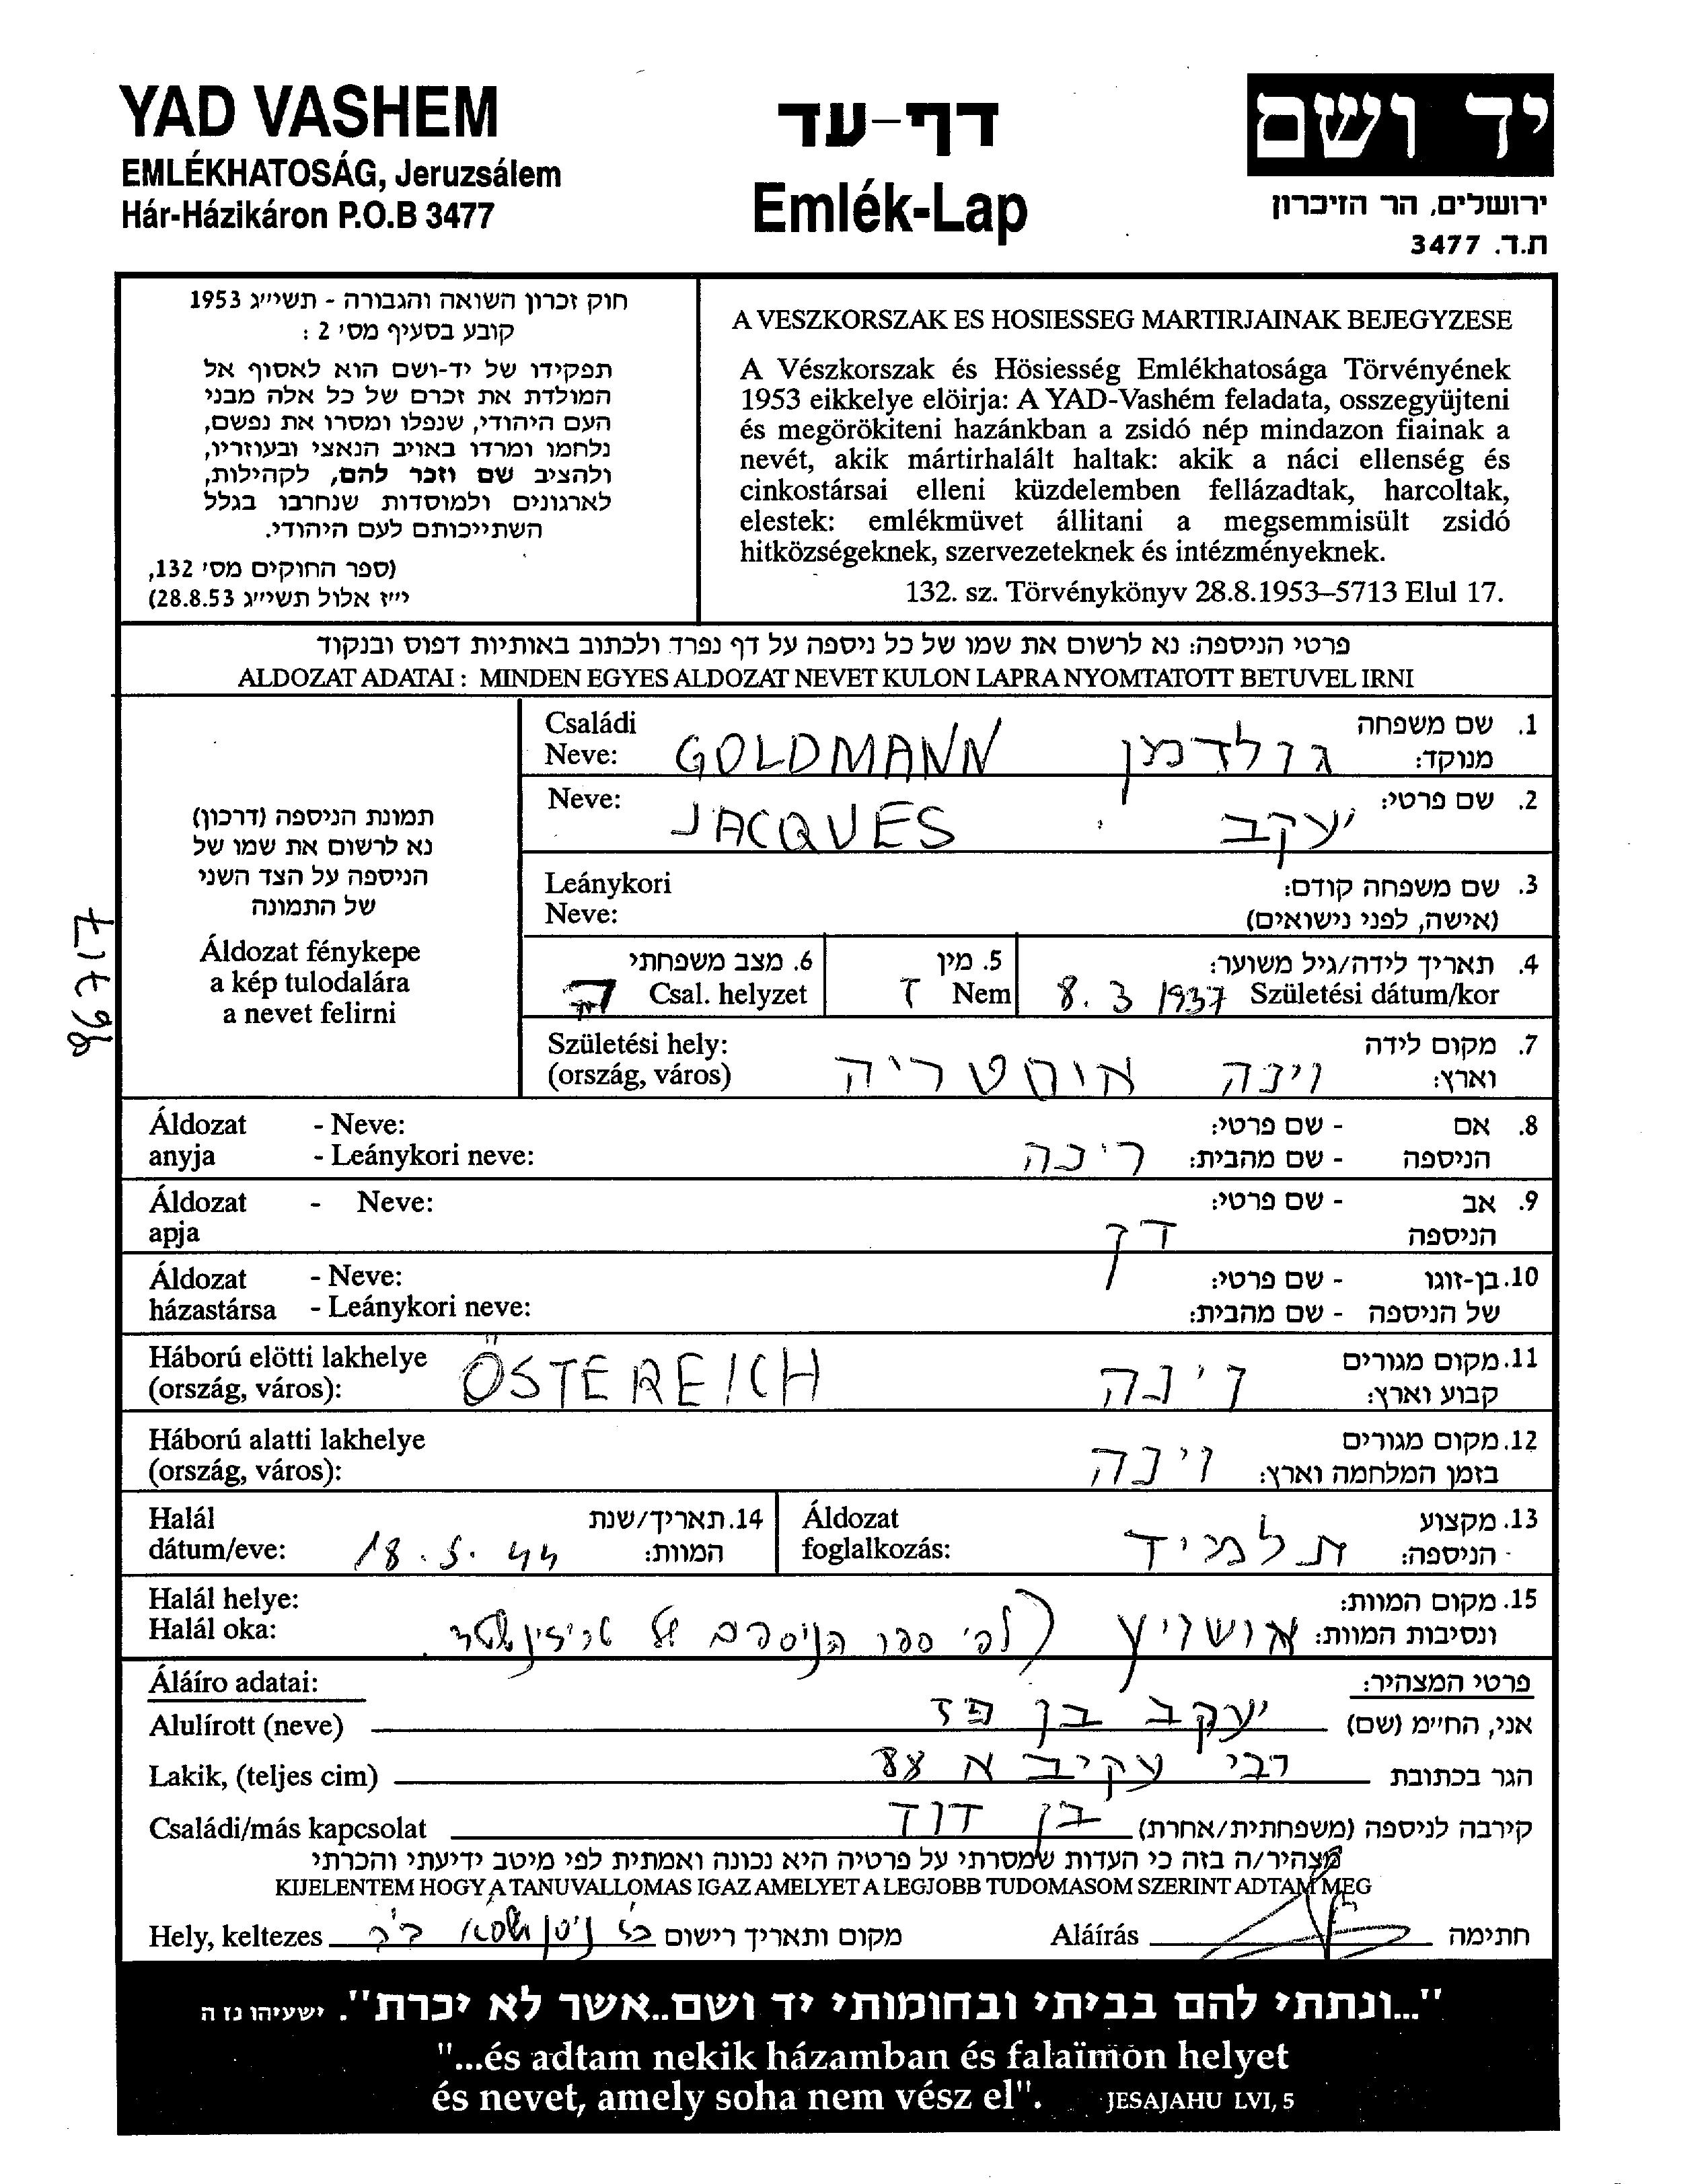 YAD VASHEM
EMLÉKHATOSÁG, Jeruzsálem
Hár-Házikáron P.O.B 3477
דף-עד
Emlék-Lap
יד ושם
ירושלים, הר הזיכרון
ת.ד. 3477
חוק זכרון השואה והגבורה - תשי״ג 1953
קובע בסעיף מס׳ 2 :
תפקידו של יד-ושם הוא לאסוף אל
המולדת את זכרם של כל אלה מבני
העם היהודי, שנפלו ומסרו את נפשם,
נלחמו ומרדו באויב הנאצי ובעוזריו,
ולהציב שם וזכר להם, לקהילות,
לארגונים ולמוסדות שנחרבו בגלל
השתייכותם לעם היהודי.
(ספר החוקים מס׳ 132,
י״ז אלול תשי״ג 28.8.53)
A VESZKORSZAK ES HOSIESSEG MARTIRJAINAK BEJEGYZESE
A Vészkorszak és Hösiesség Emlékhatosága Törvényének
1953 eikkelye elöirja: A YAD-Vashém feladata, osszegyüjteni
és megörökiteni hazánkban a zsidó nép mindazon fiainak a
nevét, akik mártirhalált haltak: akik a náci ellenség és
cinkostársai elleni küzdelemben fellázadtak, harcoltak,
elestek: emlékmüvet állitani a megsemmisült zsidó
hitközségeknek, szervezeteknek és intézményeknek.
132. sz. Törvénykönyv 28.8.1953–5713 Elul 17.
פרטי הניספה: נא לרשום את שמו של כל ניספה על דף נפרד ולכתוב באותיות דפוס ובנקוד
ALDOZAT ADATAI : MINDEN EGYES ALDOZAT NEVET KULON LAPRA NYOMTATOTT BETUVEL IRNI
תמונת הניספה (דרכון)
נא לרשום את שמו של
הניספה על הצד השני
של התמונה
Áldozat fénykepe
a kép tulodalára
a nevet felirni
Családi
Neve: GOLDMANN גולדמן
1. שם משפחה
מנוקד:
Neve: JACQUES יעקב 2. שם פרטי:
Leánykori
Neve:
3. שם משפחה קודם:
(אישה, לפני נישואים)
6. מצב משפחתי
Csal. helyzet
5. מין
Nem ז
4. תאריך לידה/גיל משוער:
8. 3 1937 Születési dátum/kor
Születési hely:
(ország, város)
וינה אוסטריה
7. מקום לידה
וארץ:
Áldozat - Neve:
anyja - Leánykori neve:
8. אם - שם פרטי:
הניספה - שם מהבית: רינה
Áldozat - Neve:
apja
9. אב - שם פרטי:
הניספה
דן
Áldozat - Neve:
házastársa - Leánykori neve:
10. בן-זוגו - שם פרטי:
של הניספה - שם מהבית:
Háború elötti lakhelye
(ország, város): ÖSTEREICH
וינה
11. מקום מגורים
קבוע וארץ:
Háború alatti lakhelye
(ország, város):
12. מקום מגורים
בזמן המלחמה וארץ: וינה
Halál
dátum/eve: 18.5.44
14. תאריך/שנת
המוות:
Áldozat
foglalkozás:
13. מקצוע
הניספה: תלמיד
Halál helye:
Halál oka:
15. מקום המוות:
ונסיבות המוות: אושויץ (לפי ספר הניספים של טריזינשטט.
Áláíro adatai:
פרטי המצהיר:
Alulírott (neve)
אני, החי״מ (שם) יעקב בן פזז
Lakik, (teljes cim)
הגר בכתובת רבי עקיבא 88
Családi/más kapcsolat
קירבה לניספה (משפחתית/אחרת) בן דוד
מצהיר/ה בזה כי העדות שמסרתי על פרטיה היא נכונה ואמתית לפי מיטב ידיעתי והכרתי
KIJELENTEM HOGY A TANUVALLOMAS IGAZ AMELYET A LEGJOBB TUDOMASOM SZERINT ADTAM MEG
Hely, keltezes
מקום ותאריך רישום
Aláírás
חתימה
"...ונתתי להם בביתי ובחומותי יד ושם..אשר לא יכרת". ישעיהו נז ה
"...és adtam nekik házamban és falaïmon helyet
és nevet, amely soha nem vész el". JESAJAHU LVI, 5